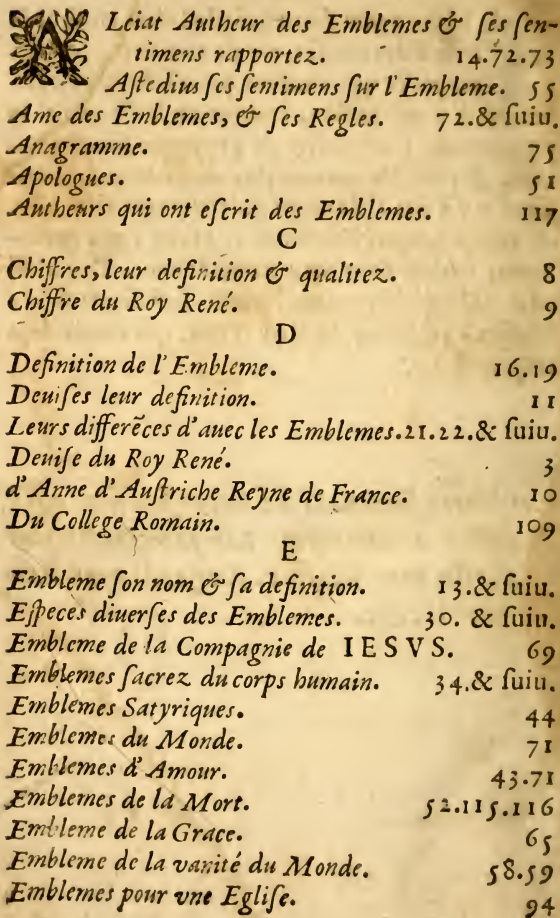 ALciat Autheur des Emblemes & ses sen-
timens rapportez. 14.72.73
Astedius ses sentimens sur l'Embleme. 55
Ame des Emblemes, & ses Regles. 72.& suiu.
Anagramme. 75
Apologues. 51
Autheurs qui ont escrit des Emblemes. 117
C
Chiffres, leur definition & qualitez. 8
Chiffre du Roy René. 9
D
Definition de l'Embleme. 16.19
Deuises leur definition. 11
Leurs differẽces d'auec les Emblemes.21.22.& suiu.
Deuise du Roy René. 3
d'Anne d'Austriche Reyne de France. 10
Du College Romain. 109
E
Embleme son nom & sa definition. 13.& suiu.
Especes diuerses des Emblemes. 30. & suiu.
Embleme de la Compagnie de IESVS. 69
Emblemes sacrez du corps humain. 34.& suiu.
Emblemes Satyriques. 44
Emblemes du Monde. 71
Emblemes d'Amour. 43.71
Emblemes de la Mort. 52.115.116
Embleme de la Grace. 65
Embleme de la vanité du Monde. 58.59
Emblemes pour vne Eglise. 94